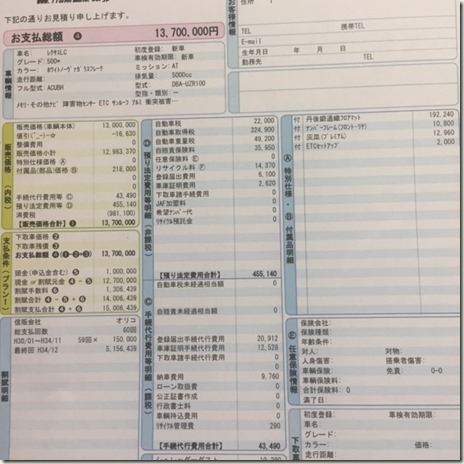 下記の通りお見積り申し上げます。
お支払総額 ④ 13,700,000円
車輌情報
車名: レクサスLC
グレード: 500*
カラー: ホワイトノーヴァガラスフレーク
走行距離:
フル型式: ACUBH
初度登録: 新車
車検有効期限: 新車
ミッション: AT
排気量: 5000cc
型式: DBA-UZR100
型指・類別: ―
メモリ・その他ナビ 障害物センサー ETC サンルーフ アルミ 衝突被害-
お客様情報
住所: 〒
TEL 携帯TEL
E-mail
生年月日 年 月 日
勤務先
TEL
販売価格(内税)
販売価格(車輌本体) 13,000,000
値引(^_−)−☆ -16,630
整備費用 0
販売価格小計 12,983,370
特別仕様価格 Ⓐ 0
付属品(部品)価格 Ⓑ 218,000
0
0
手続代行費用等 Ⓒ 43,490
預り法定費用等 Ⓓ 455,140
消費税 (981,100)
【販売価格合計】 ① 13,700,000
支払条件(プラン1)
下取車価格 ②
下取車残債 ③
お支払総額 ④ (①-②+③) 13,700,000
頭金(申込金含む) ⑤ 1,000,000
現金 or 割賦元金 ④-⑤ 12,700,000
割賦手数料 ⑥ 1,306,439
割賦合計 ④-⑤+⑥ 14,006,439
支払総額 ④+⑥ 15,006,439
割賦明細
信販会社 オリコ
総支払回数 60回
H30/01~H34/11 59回 × 150,000
最終回 H34/12 5,156,439
Ⓓ 預り法定費用等明細(非課税)
自動車税 22,000
自動車取得税 324,900
自動車重量税 49,200
自賠責保険料 35,950
任意保険料 Ⓔ 0
リサイクル料 Ⓕ 14,370
登録届出費用 6,100
車庫証明費用 2,620
下取車申請費用 0
JAF加盟料 0
希望ナンバー代 0
リサイクル預託金 0
【預り法定費用合計】 455,140
自動車税未経過相当額 0
自賠責未経過相当額 0
Ⓒ 手続代行費用等明細(課税)
登録届出手続代行費用 20,912
車庫証明手続代行費用 12,528
下取車申請手続代行費用 0
0
納車費用 9,760
ローン取扱費 0
公正証書作成 0
行政書士料 0
車輌持込費用 0
リサイクル管理費 290
【手続代行費用合計】 43,490
シュレッダーダスト
Ⓐ 特別仕様・Ⓑ 付属品明細
付 丹後鍛通織フロアマット 192,240
付 ナンバーフレーム(フロント・リヤ) 10,800
付 灰皿(プレミアム) 12,960
付 ETCセットアップ 2,000
Ⓔ 任意保険情報
保険会社:
保険種類:
年齢条件:
対人: 対物:
人身傷害: 搭乗者傷害:
車輌保険: 免責: 0-0
車輌保険料:
合計保険料: 0
満了日:
下取車
初度登録: 車検有効期限:
車名:
グレード:
カラー: 価格:
走行距離: